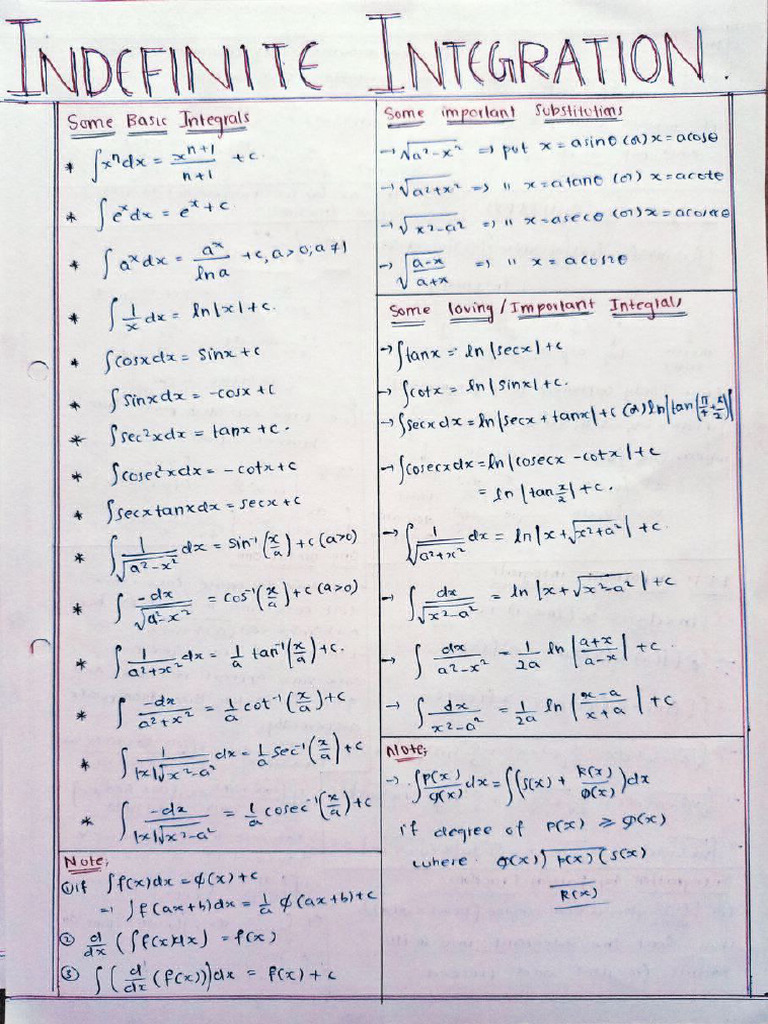 INDEFINITE INTEGRATION.
Some Basic Integrals
* ∫xⁿdx = xⁿ⁺¹/n+1 + c.
* ∫eˣdx = eˣ + c.
* ∫aˣdx = aˣ/ln a + c, a>0, a≠1
* ∫1/x dx = ln|x| + c.
* ∫cosxdx = sinx + c
* ∫sinxdx = -cosx + c
* ∫sec²xdx = tanx + c.
* ∫cosec²xdx = -cotx + c
* ∫secxtanxdx = secx + c
* ∫1/√(a²-x²) dx = sin⁻¹(x/a) + c (a>0)
* ∫-dx/√(a²-x²) = cos⁻¹(x/a) + c (a>0)
* ∫1/(a²+x²) dx = 1/a tan⁻¹(x/a) + c.
* ∫-dx/(a²+x²) = 1/a cot⁻¹(x/a) + c
* ∫1/(|x|√(x²-a²)) dx = 1/a sec⁻¹(x/a) + c
* ∫-dx/(|x|√(x²-a²)) = 1/a cosec⁻¹(x/a) + c
Note;
① if ∫f(x)dx = φ(x) + c
⇒ ∫f(ax+b)dx = 1/a φ(ax+b) + c
② d/dx (∫f(x)dx) = f(x)
③ ∫(d/dx (f(x)))dx = f(x) + c
Some important Substitutions
→ √(a²-x²) ⇒ put x = asinθ (or) x = acosθ
→ √(a²+x²) ⇒ " x = atanθ (or) x = acotθ
→ √(x²-a²) ⇒ " x = asecθ (or) x = acosecθ
→ √((a-x)/(a+x)) ⇒ " x = acos2θ
Some loving/Important Integrals
→ ∫tanx = ln|secx| + c
→ ∫cotx = ln|sinx| + c.
→ ∫secxdx = ln|secx + tanx| + c (or) ln|tan(π/4 + x/2)|
→ ∫cosecxdx = ln|cosecx - cotx| + c
= ln|tan x/2| + c.
→ ∫1/√(a²+x²) dx = ln|x+√(x²+a²)| + c.
→ ∫dx/√(x²-a²) = ln|x+√(x²-a²)| + c
→ ∫dx/(a²-x²) = 1/2a ln|(a+x)/(a-x)| + c
→ ∫dx/(x²-a²) = 1/2a ln|(x-a)/(x+a)| + c
Note;
→ ∫P(x)/Q(x) dx = ∫(S(x) + R(x)/Q(x))dx
if degree of P(x) ≥ Q(x)
where Q(x))P(x)(S(x)
R(x)